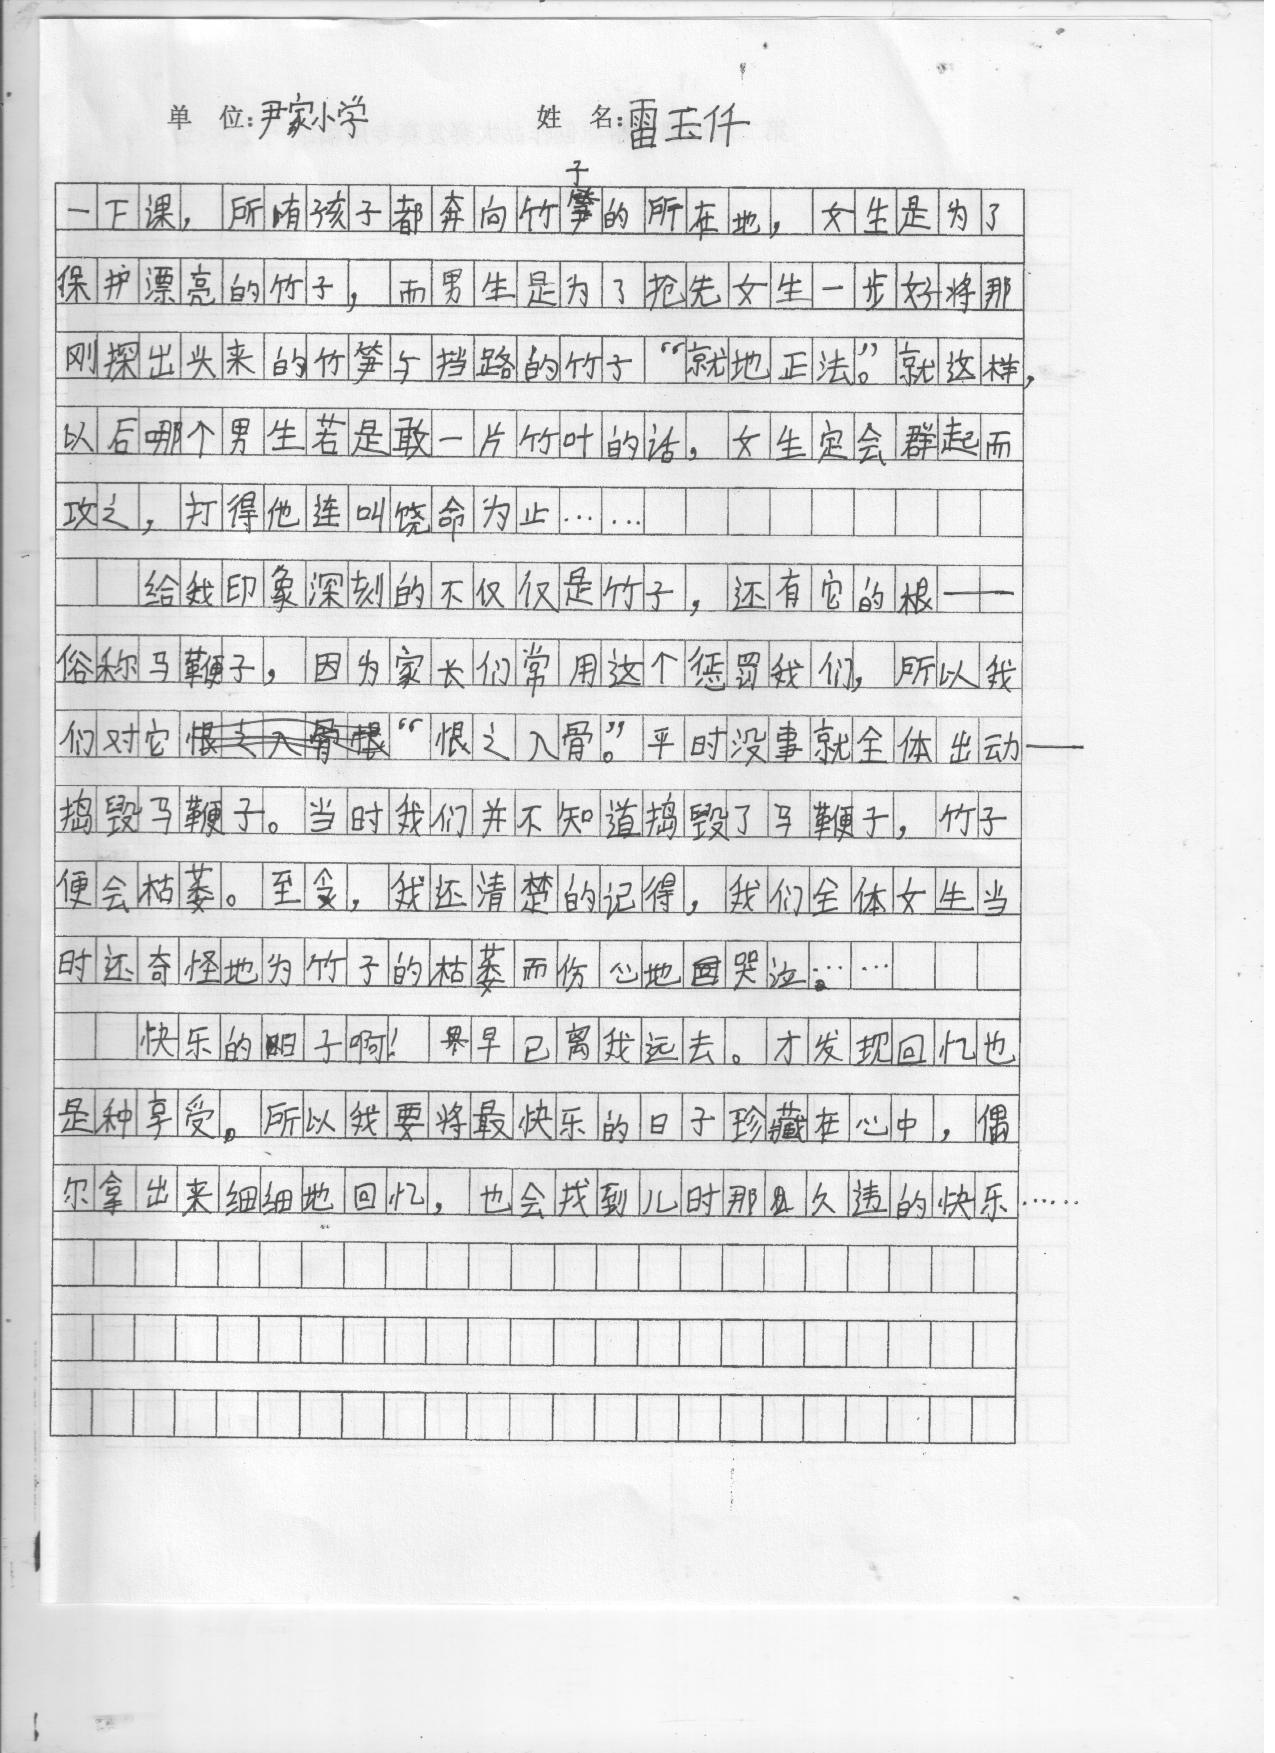 单 位:尹家小学 姓 名:雷玉仟
一下课，所有孩子都奔向竹子的所在地，女生是为了
保护漂亮的竹子，而男生是为了抢先女生一步好将那
刚探出头来的竹笋与挡路的竹子“就地正法”。就这样，
以后哪个男生若是敢一片竹叶的话，女生定会群起而
攻之，打得他连叫饶命为止……
给我印象深刻的不仅仅是竹子，还有它的根——
俗称马鞭子，因为家长们常用这个惩罚我们，所以我
们对它“恨之入骨”。平时没事就全体出动——
捣毁马鞭子。当时我们并不知道捣毁了马鞭子，竹子
便会枯萎。至今，我还清楚的记得，我们全体女生当
时还奇怪地为竹子的枯萎而伤心地哭泣……
快乐的日子啊！早已离我远去。才发现回忆也
是种享受。所以我要将最快乐的日子珍藏在心中，偶
尔拿出来细细地回忆，也会找到儿时那久违的快乐……